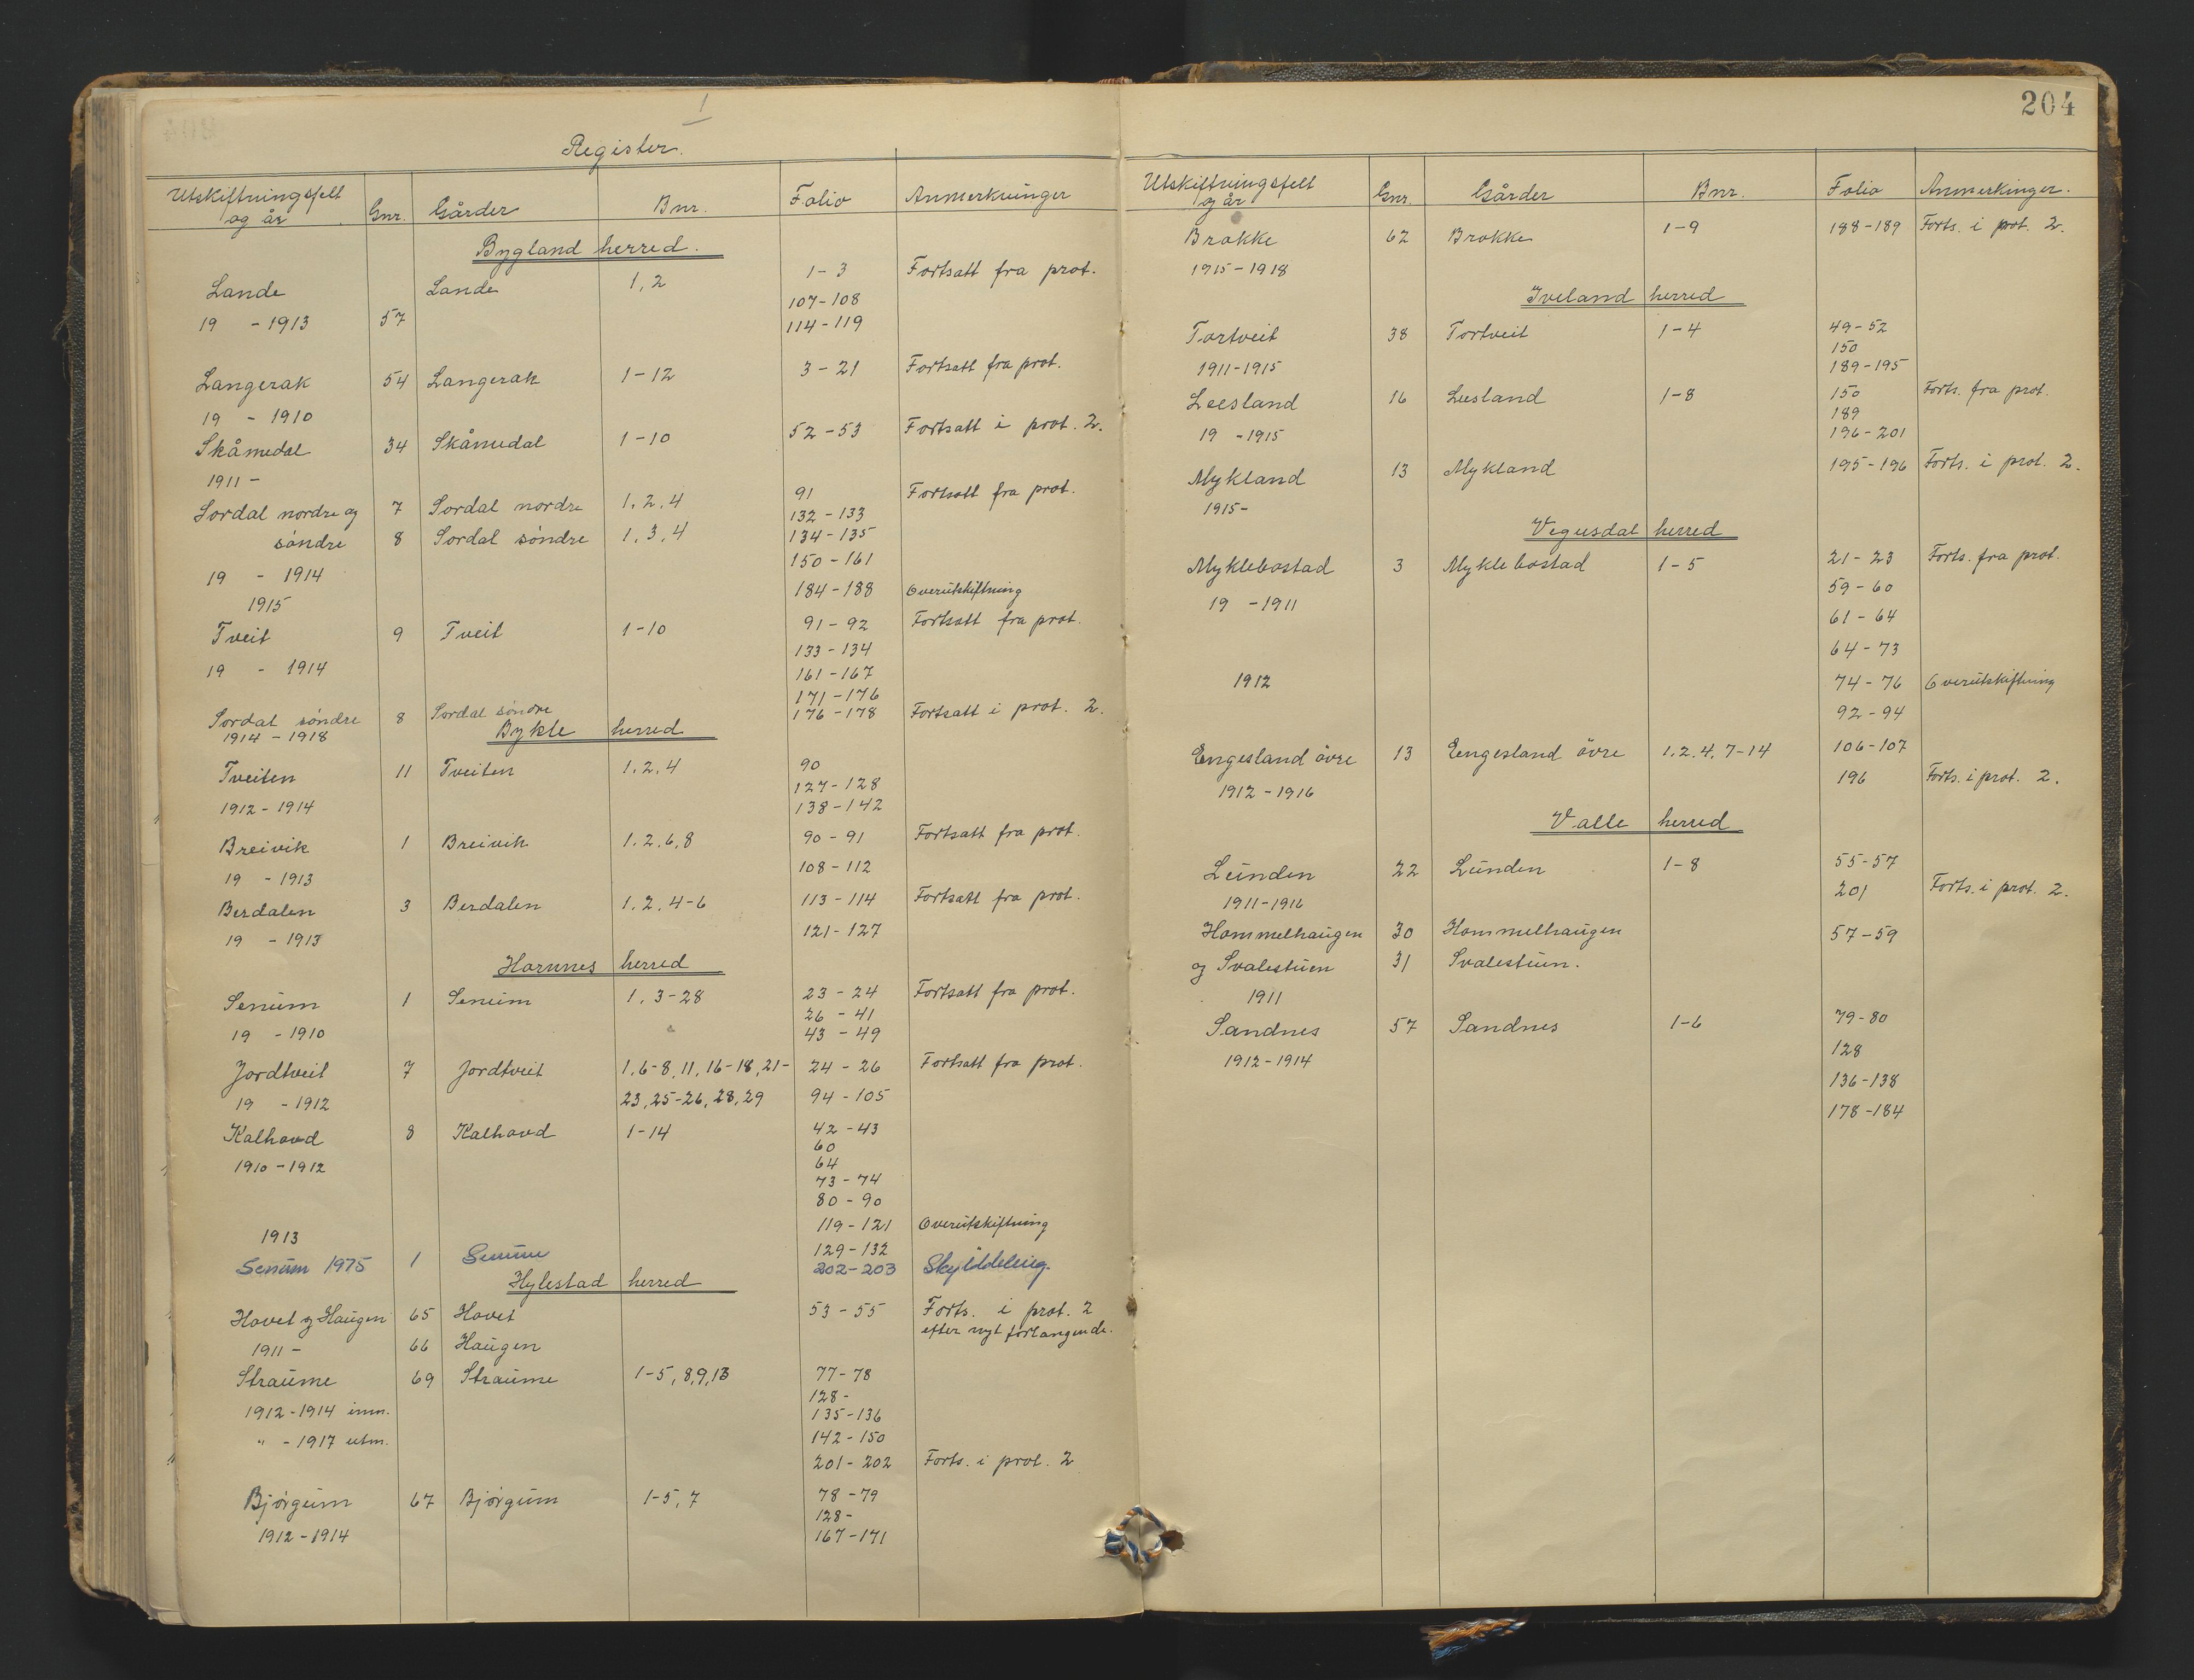 1
Register.
Utskiftningsfelt og år Gnr. Gårder Bnr. Folio Anmerkninger
Bygland herred.
Lande Lande 1, 2 1-3 Fortsatt fra prot.
107-108
19 - 1913 57 114-119
Langerak 54 Langerak 1-12 3-21 Fortsatt fra prot.
19 - 1910
Skåmedal 34 Skåmedal 1-10 52-53 Fortsatt i prot. 2.
1911 -
Sordal nordre og 7 Sordal nordre 1, 2, 4 91 Fortsatt fra prot.
132-133
søndre 8 Sordal søndre 1, 3, 4 134-135
19 - 1914 150-161
1915 184-188 Overutskiftning
Tveit 9 Tveit 1-10 91-92 Fortsatt fra prot.
133-134
19 - 1914 161-167
171-176
Sordal søndre 8 Sordal søndre 176-178 Fortsatt i prot. 2.
1914-1918
Bykle herred
Tveiten 11 Tveiten 1, 2, 4 90
127-128
1912-1914 138-142
Breivik 1 Breivik 1, 2, 6, 8 90-91 Fortsatt fra prot.
19 - 1913 108-112
Berdalen 3 Berdalen 1, 2, 4-6 113-114 Fortsatt fra prot.
19 - 1913 121-127
Hornnes herred
Senum 1 Senum 1, 3-28 23-24 Fortsatt fra prot.
26-41
19 - 1910 43-49
Jordtveit 7 Jordtveit 1, 6-8, 11, 16-18, 21- 24-26 Fortsatt fra prot.
19 - 1912 23, 25-26, 28, 29 94-105
Kalhovd 8 Kalhovd 1-14 42-43
60
1910-1912 64
73-74
80-90
119-121 Overutskiftning
1913 129-132
Senum 1975 1 Senum 202-203 Skylddeling.
Hylestad herred
Hovet og Haugen 65 Hovet 53-55 Forts. i prot. 2
efter nyt forlangende.
1911 - 66 Haugen
Straume 69 Straume 1-5, 8, 9, 13 77-78
128-
1912-1914 innm. 135-136
" - 1917 utm. 142-150
201-202 Forts. i prot. 2
Bjørgum 67 Bjørgum 1-5, 7 78-79
128-
1912-1914 167-171
204
Utskiftningsfelt og år Gnr. Gårder Bnr. Folio Anmerkinger.
Brokke 62 Brokke 1-9 188-189 Forts. i prot. 2.
1915-1918
Iveland herred
Tortveit 38 Tortveit 1-4 49-52
150
1911-1915 189-195
Leesland 16 Leesland 1-8 150 Forts. fra prot.
189
19 - 1915 196-201
Mykland 13 Mykland 195-196 Forts. i prot. 2.
1915-
Vegusdal herred
Myklebostad 3 Myklebostad 1-5 21-23 Forts. fra prot.
19 - 1911 59-60
61-64
64-73
1912 74-76 Overutskiftning
92-94
Engesland övre 13 Eengesland övre 1, 2, 4, 7-14 106-107
1912-1916 196 Forts. i prot. 2.
Valle herred
Lunden 22 Lunden 1-8 55-57
1911-1916 201 Forts. i prot. 2.
Hommelhaugen 30 Hommelhaugen 57-59
og Svalestuen 31 Svalestuen.
1911
Sandnes 57 Sandnes 1-6 79-80
1912-1914 128
136-138
178-184